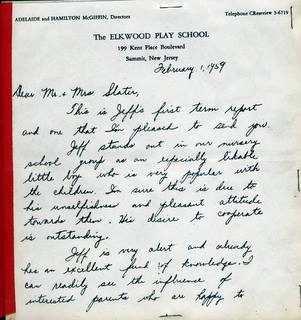 ADELAIDE and HAMILTON McGIFFIN, Directors
Telephone CRestview 3-6719
The ELKWOOD PLAY SCHOOL
199 Kent Place Boulevard
Summit, New Jersey
February 1, 1959
Dear Mr. & Mrs Slater,
This is Jeff's first term report
and one that I'm pleased to send you.
Jeff stands out in our nursery
school group as an especially likable
little boy who is very popular with
the children. I'm sure this is due to
his unselfishness and pleasant attitude
towards them. His desire to cooperate
is outstanding.
Jeff is very alert and already
has an excellent fund of knowledge. I
can readily see the influence of
interested parents who are happy to